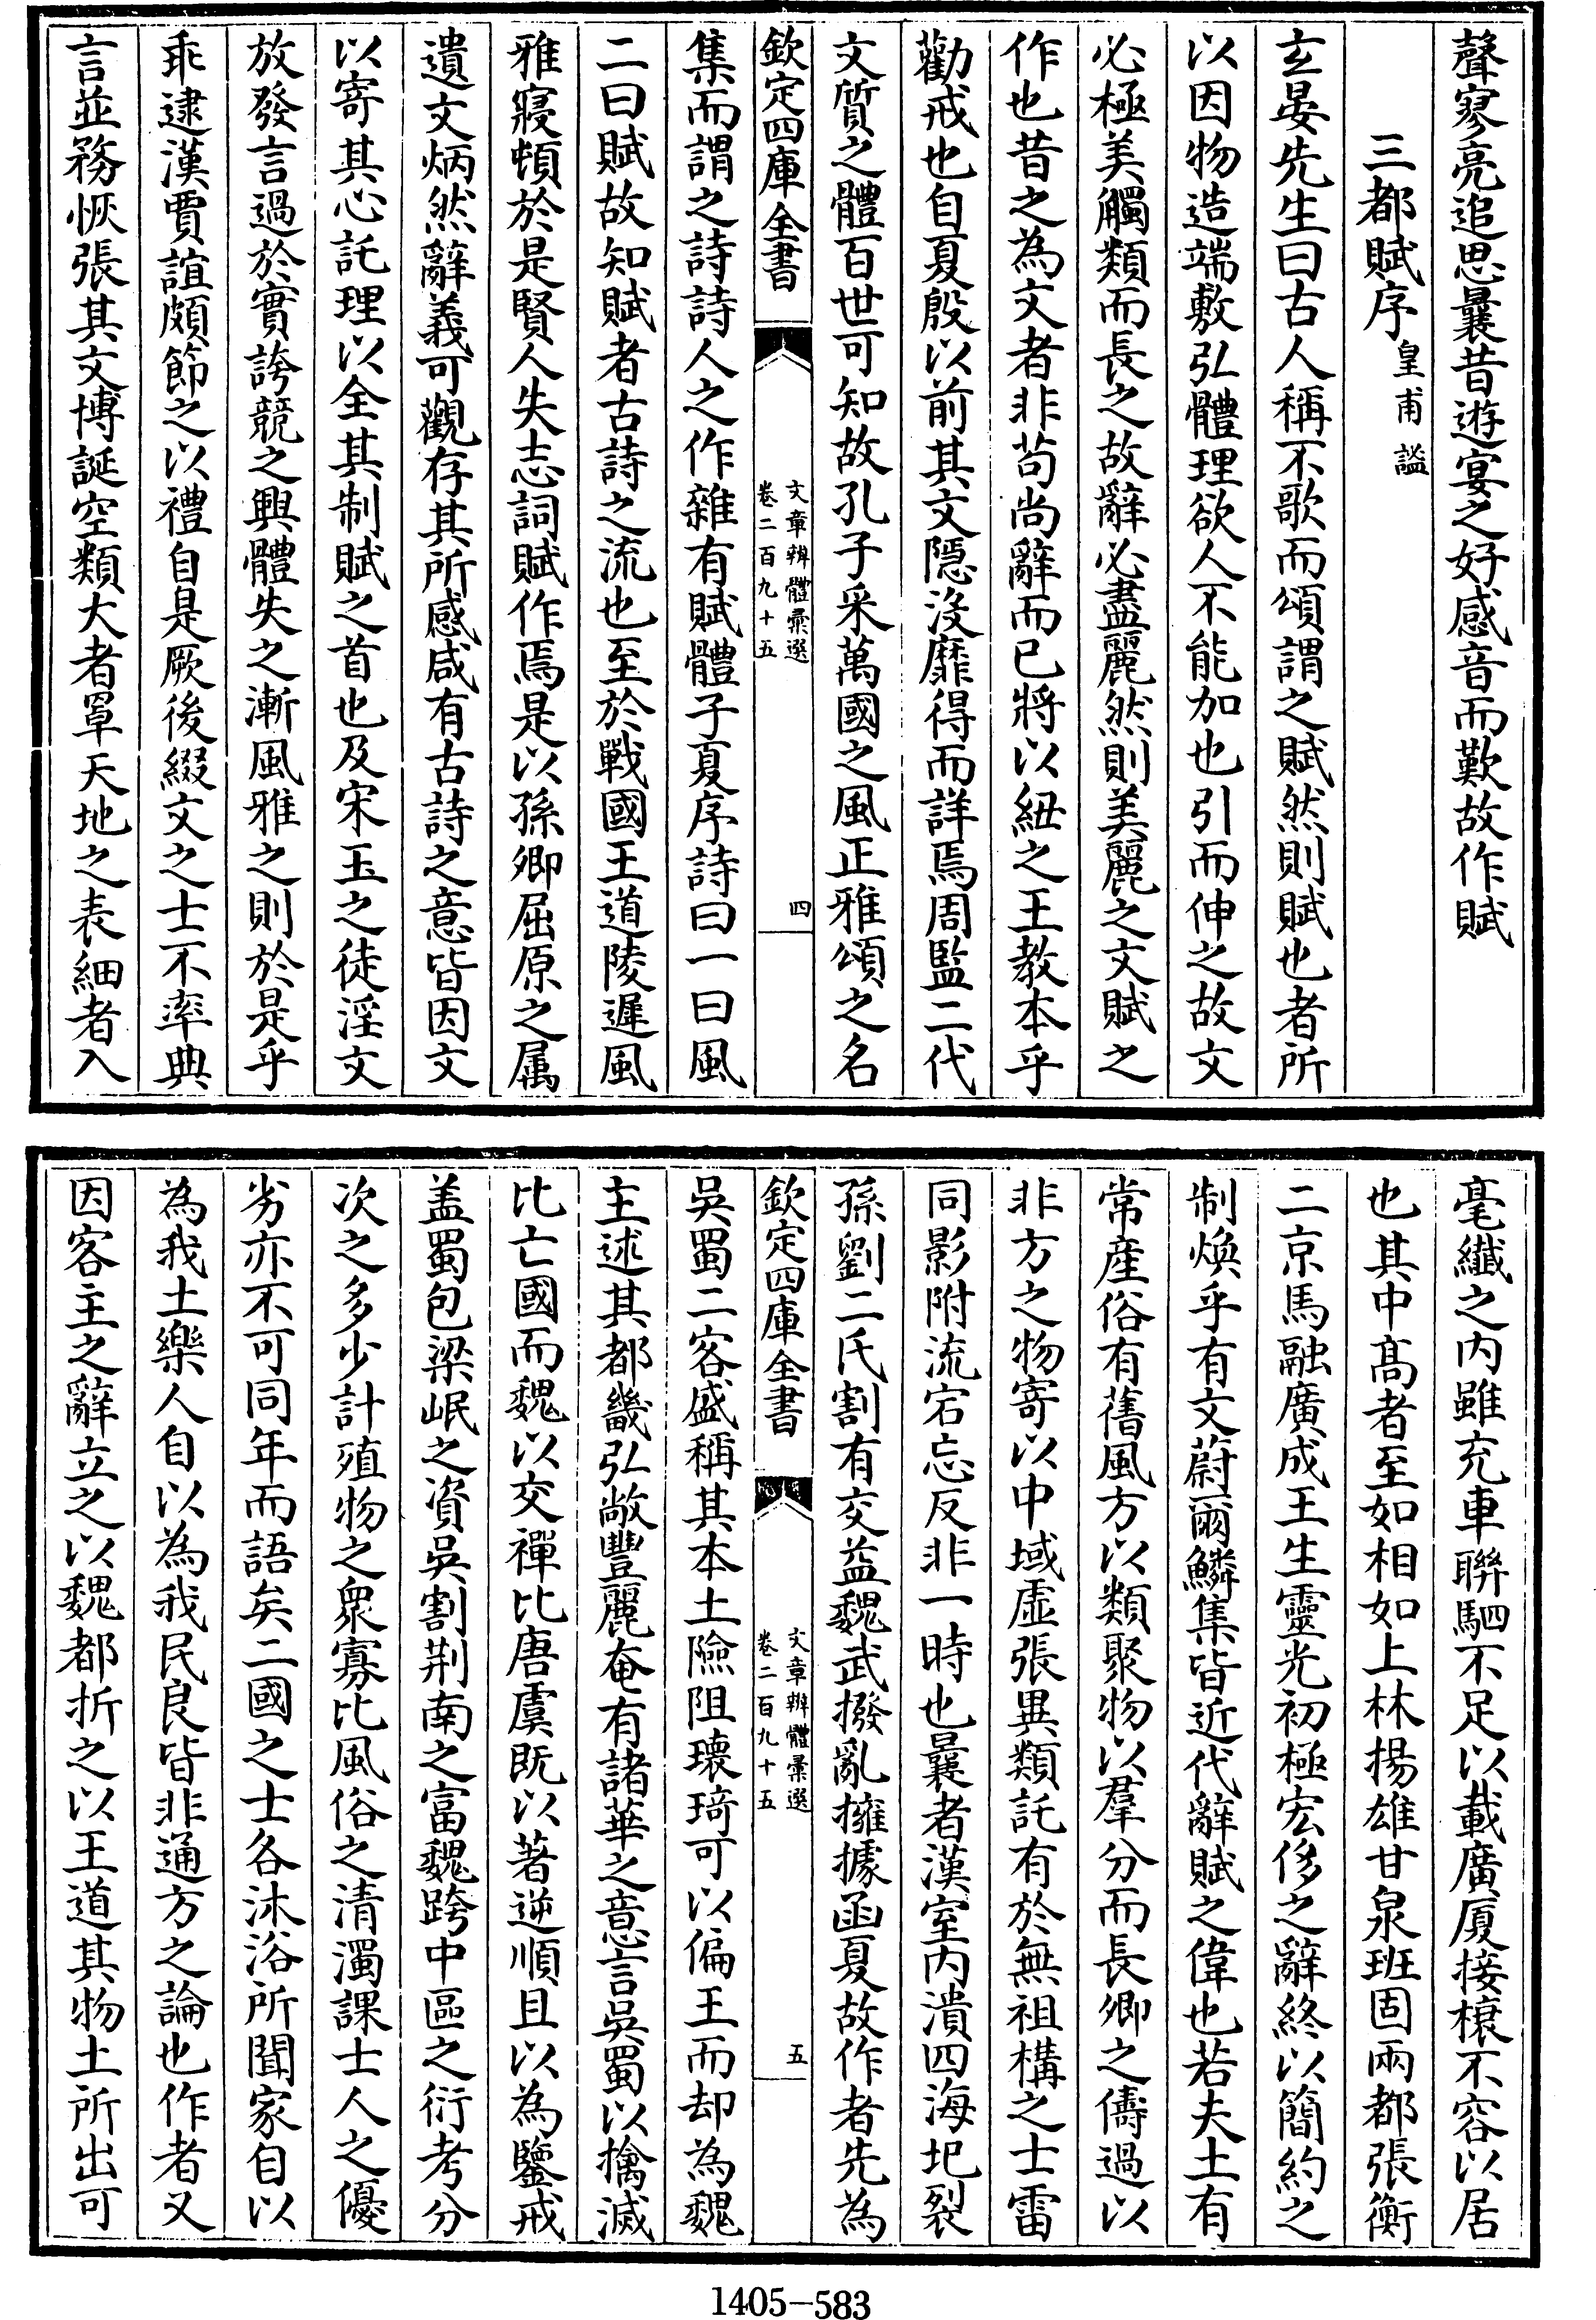 聲寥亮追思曩昔遊宴之好感音而歎故作賦
三都賦序皇甫謐
玄晏先生曰古人稱不歌而頌謂之賦然則賦也者所
以因物造端敷弘體理欲人不能加也引而伸之故文
必極美觸類而長之故辭必盡麗然則美麗之文賦之
作也昔之為文者非苟尚辭而已將以紐之王教本乎
勸戒也自夏殷以前其文隱沒靡得而詳焉周監二代
文質之體百世可知故孔子采萬國之風正雅頌之名
欽定四庫全書
文章辨體彙選
卷二百九十五
四
集而謂之詩詩人之作雜有賦體子夏序詩曰一曰風
二曰賦故知賦者古詩之流也至於戰國王道陵遲風
雅寢頓於是賢人失志詞賦作焉是以孫卿屈原之属
遺文炳然辭義可觀存其所感咸有古詩之意皆因文
以寄其心託理以全其制賦之首也及宋玉之徒淫文
放發言過於實誇競之興體失之漸風雅之則於是乎
乖逮漢賈誼頗節之以禮自是厥後綴文之士不率典
言並務恢張其文博誕空類大者罩天地之表細者入
毫纖之内雖充車聯駟不足以載廣厦接榱不容以居
也其中髙者至如相如上林揚雄甘泉班固兩都張衡
二京馬融廣成王生靈光初極宏侈之辭終以簡約之
制煥乎有文蔚爾鱗集皆近代辭賦之偉也若夫土有
常産俗有舊風方以類聚物以羣分而長卿之儔過以
非方之物寄以中域虛張異類託有於無祖構之士雷
同影附流宕忘反非一時也曩者漢室内潰四海圯裂
孫劉二氏割有交益魏武撥亂擁據函夏故作者先為
欽定四庫全書
文章辨體彙選
卷二百九十五
五
吳蜀二客盛稱其本土險阻瓌琦可以偏王而却為魏
主述其都畿弘敞豐麗奄有諸華之意言吳蜀以擒滅
比亡國而魏以交禪比唐虞既以著逆順且以為鑒戒
盖蜀包梁岷之資吳割荆南之富魏跨中區之衍考分
次之多少計殖物之衆寡比風俗之清濁課士人之優
劣亦不可同年而語矣二國之士各沐浴所聞家自以
為我土樂人自以為我民良皆非通方之論也作者又
因客主之辭立之以魏都折之以王道其物土所出可
1405-583